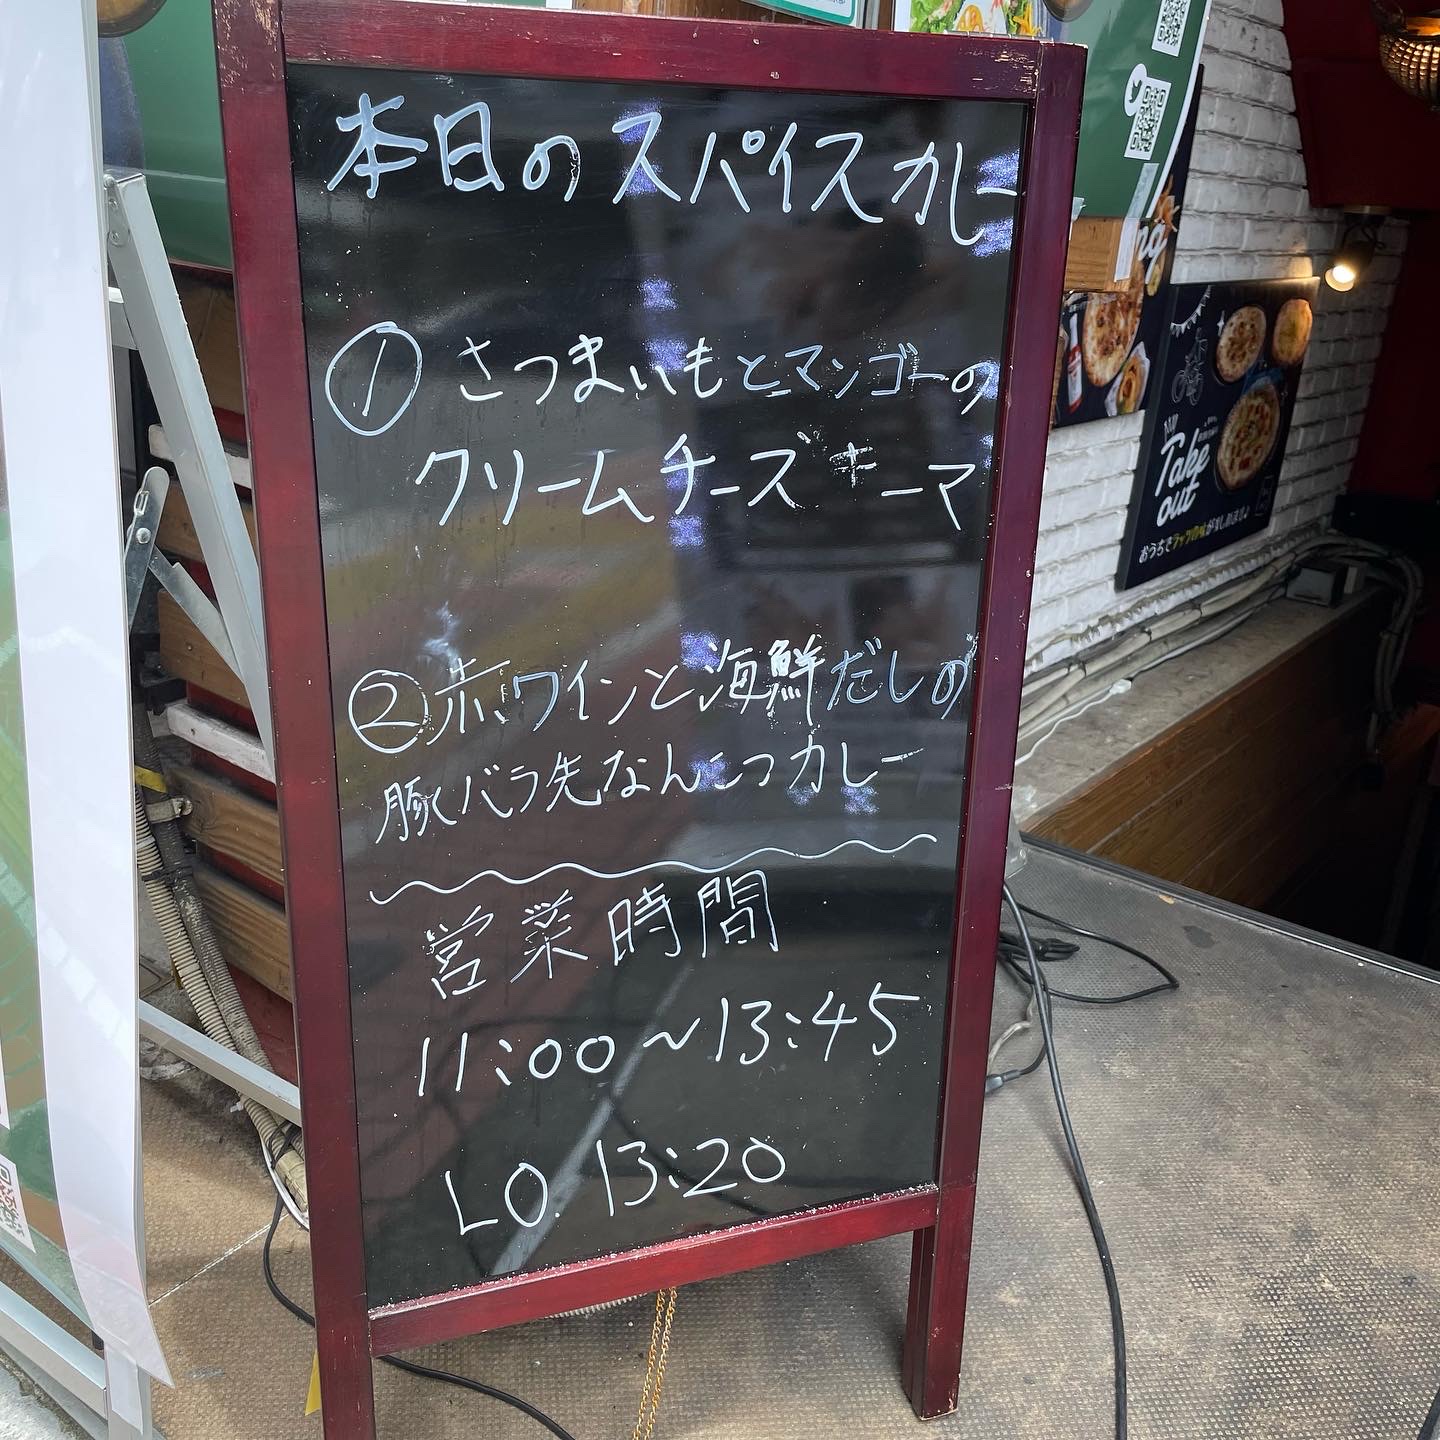 本日のスパイスカレー
① さつまいもとマンゴーの
クリームチーズキーマ
②赤ワインと海鮮だしの
豚バラ先なんこつカレー
営業時間
11:00～13:45
LO. 13:20
Take
out